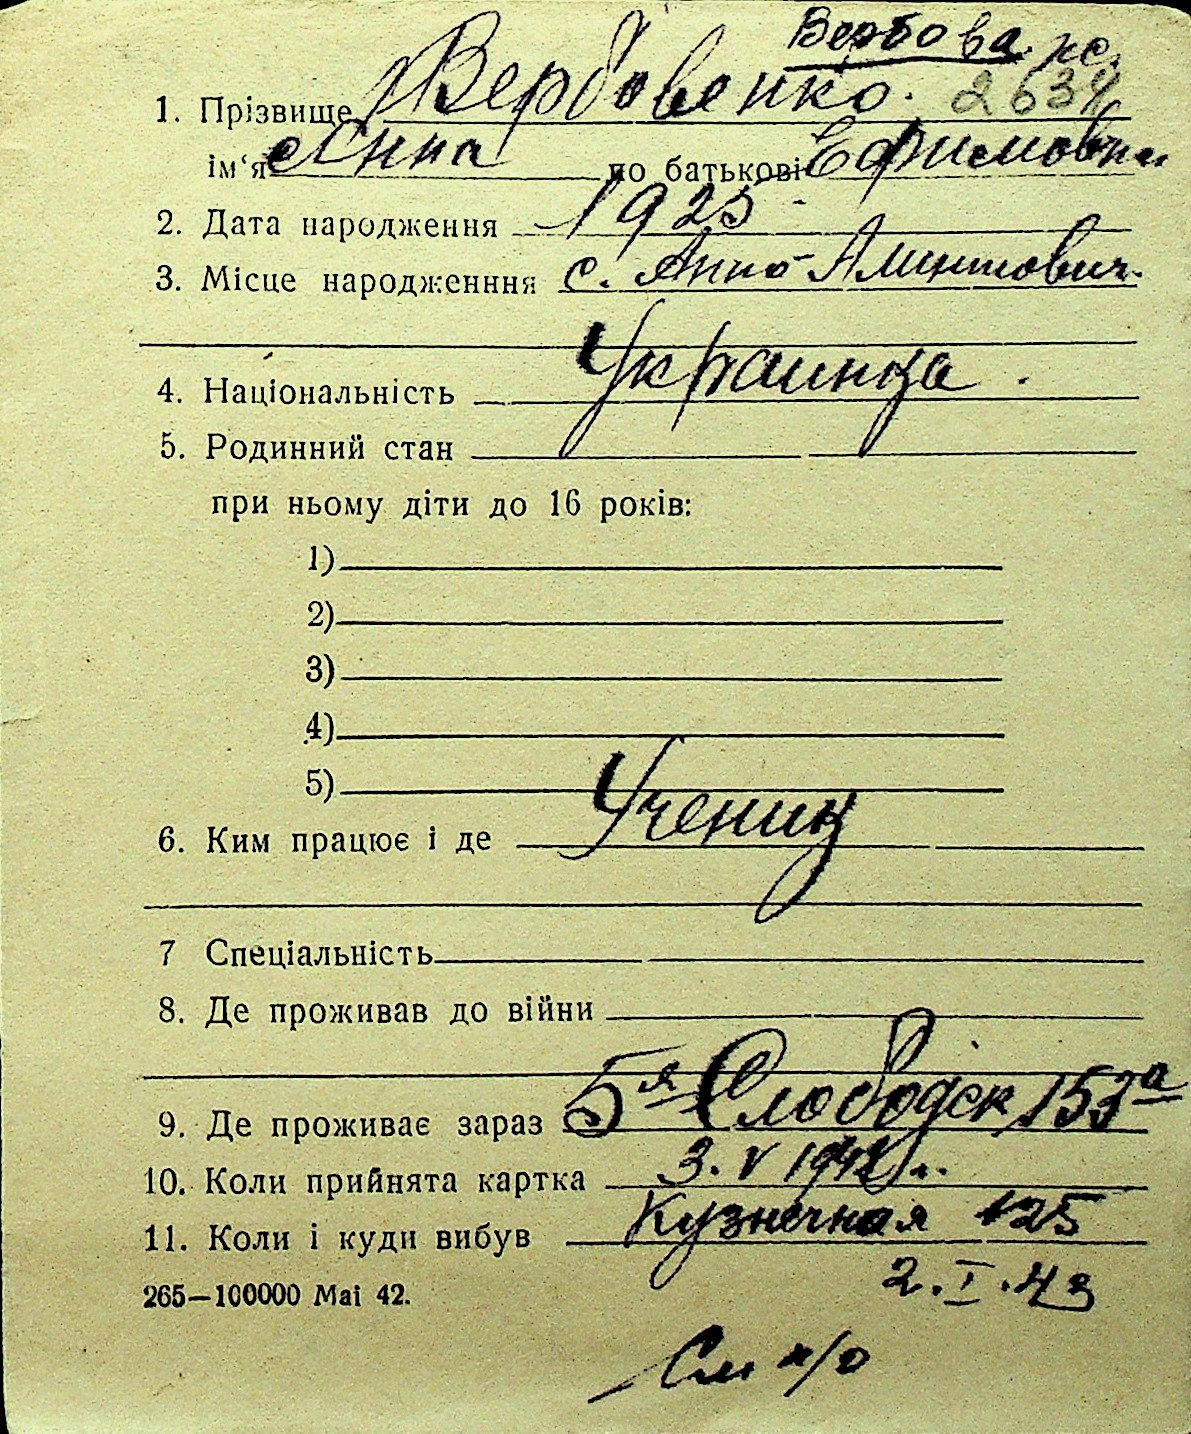 Вербова
1. Прізвище Вербовенко. 2634
ім‘я Анна по батькові Ефимовна
2. Дата народження 1925
3. Місце народженння с.
4. Національність Украинца.
5. Родинний стан
при ньому діти до 16 років:
1)
2)
3)
4)
5)
6. Ким працює і де Учениц
7 Спеціальність
8. Де проживав до війни
9. Де проживає зараз 5я Слободск 153а
10. Коли прийнята картка 3. V 1942 г.
11. Коли і куди вибув Кузнечная 125
2. I. 43
265—100000 Mai 42.
См н/о